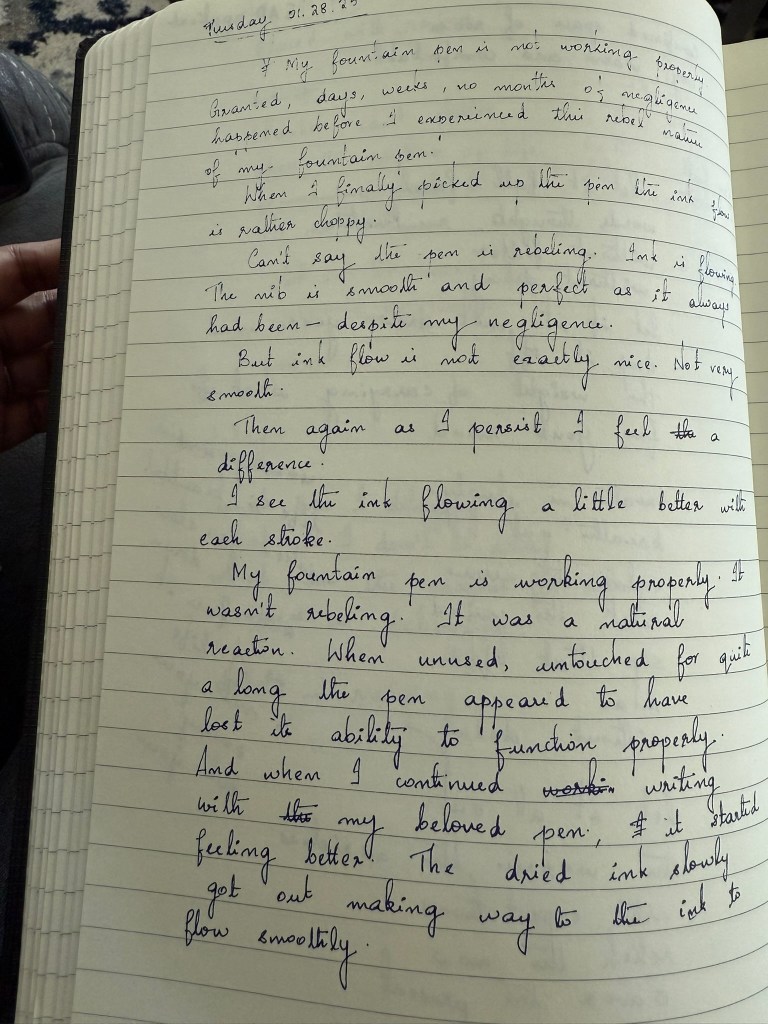 Tuesday 01.28.25
My fountain pen is not working properly
Granted, days, weeks, no months of negligence
happened before I experienced this rebel nature
of my fountain pen.
When I finally picked up the pen the ink flow
is rather choppy.
Can't say the pen is rebeling. Ink is flowing.
The nib is smooth and perfect as it always
had been – despite my negligence.
But ink flow is not exactly nice. Not very
smooth.
Then again as I persist I feel a
difference.
I see the ink flowing a little better with
each stroke.
My fountain pen is working properly. It
wasn't rebeling. It was a natural
reaction. When unused, untouched for quite
a long the pen appeared to have
lost its ability to function properly.
And when I continued writing
with my beloved pen, it started
feeling better. The dried ink slowly
got out making way to the ink to
flow smoothly.